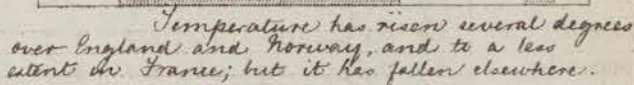 Temperature has risen several degrees
over England and Norway, and to a less
extent in France; but it has fallen elsewhere.